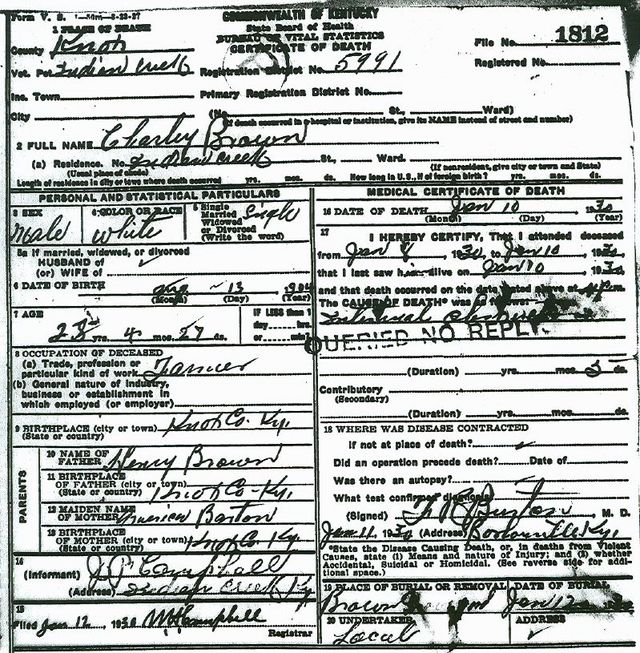 Form V. S. 1-50m-8-23-27
COMMONWEALTH OF KENTUCKY
State Board of Health
BUREAU OF VITAL STATISTICS
CERTIFICATE OF DEATH
1 PLACE OF DEATH
County Knox
File No. 1812
Vot. Pct. Indian Creek
Registration District No. 5991
Registered No.
Inc. Town
Primary Registration District No.
City (No. St., Ward)
(If death occurred in a hospital or institution, give its NAME instead of street and number)
2 FULL NAME Charley Brown
(a) Residence. No. Indian Creek St., Ward.
(Usual place of abode) (If nonresident, give city or town and State)
Length of residence in city or town where death occurred yrs. mos. ds. How long in U. S., if of foreign birth? yrs. mos. ds.
PERSONAL AND STATISTICAL PARTICULARS
3 SEX Male
4 COLOR OR RACE White
5 Single Married Widowed or Divorced (Write the word) Single
5a If married, widowed, or divorced
HUSBAND of
(or) WIFE of
6 DATE OF BIRTH Aug 13
(Month) (Day) (Year)
7 AGE yrs. 4 mos. 27 ds.
IF LESS than 1 day hrs. or min?
8 OCCUPATION OF DECEASED
(a) Trade, profession or particular kind of work Farmer
(b) General nature of industry, business or establishment in which employed (or employer)
9 BIRTHPLACE (city or town) Knox Co. Ky.
(State or country)
PARENTS
10 NAME OF FATHER Henry Brown
11 BIRTHPLACE OF FATHER (city or town) Knox Co. Ky.
(State or country)
12 MAIDEN NAME OF MOTHER
13 BIRTHPLACE OF MOTHER (city or town) Knox Co. Ky.
(State or country)
14 (Informant) J. P. Campbell
(Address) Indian Creek Ky
15 Filed Jan 12, 1930 Campbell
Registrar
MEDICAL CERTIFICATE OF DEATH
16 DATE OF DEATH Jan 10 1930
(Month) (Day) (Year)
17 I HEREBY CERTIFY, That I attended deceased
from Jan 8 1930, to Jan 10 1930
that I last saw him alive on Jan 10 1930
and that death occurred on the date stated above at
The CAUSE OF DEATH* was as follows:
QUERIED NO REPLY.
(Duration) yrs. mos. 5 ds.
Contributory
(Secondary)
(Duration) yrs. mos. ds.
18 WHERE WAS DISEASE CONTRACTED
If not at place of death?
Did an operation precede death? Date of
Was there an autopsy?
What test confirmed diagnosis?
(Signed) Burton M. D.
Jan 11 1930 (Address) Ky.
*State the Disease Causing Death, or, in deaths from Violent
Causes, state (1) Means and nature of Injury; and (2) whether
Accidental, Suicidal or Homicidal. (See reverse side for additional space.)
19 PLACE OF BURIAL OR REMOVAL Brown
DATE OF BURIAL Jan 12
20 UNDERTAKER Local
ADDRESS